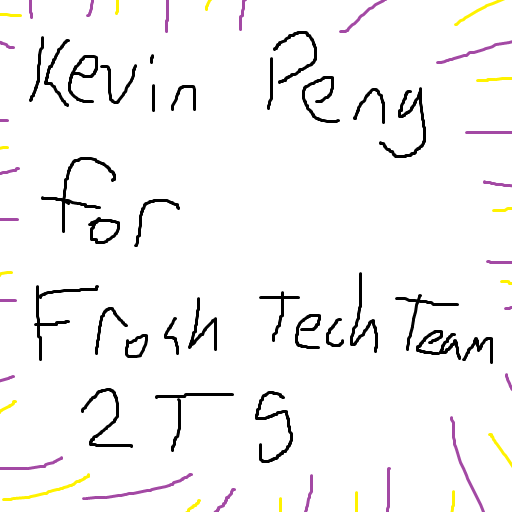 Kevin Peng
for
Frosh Tech Team
2T9